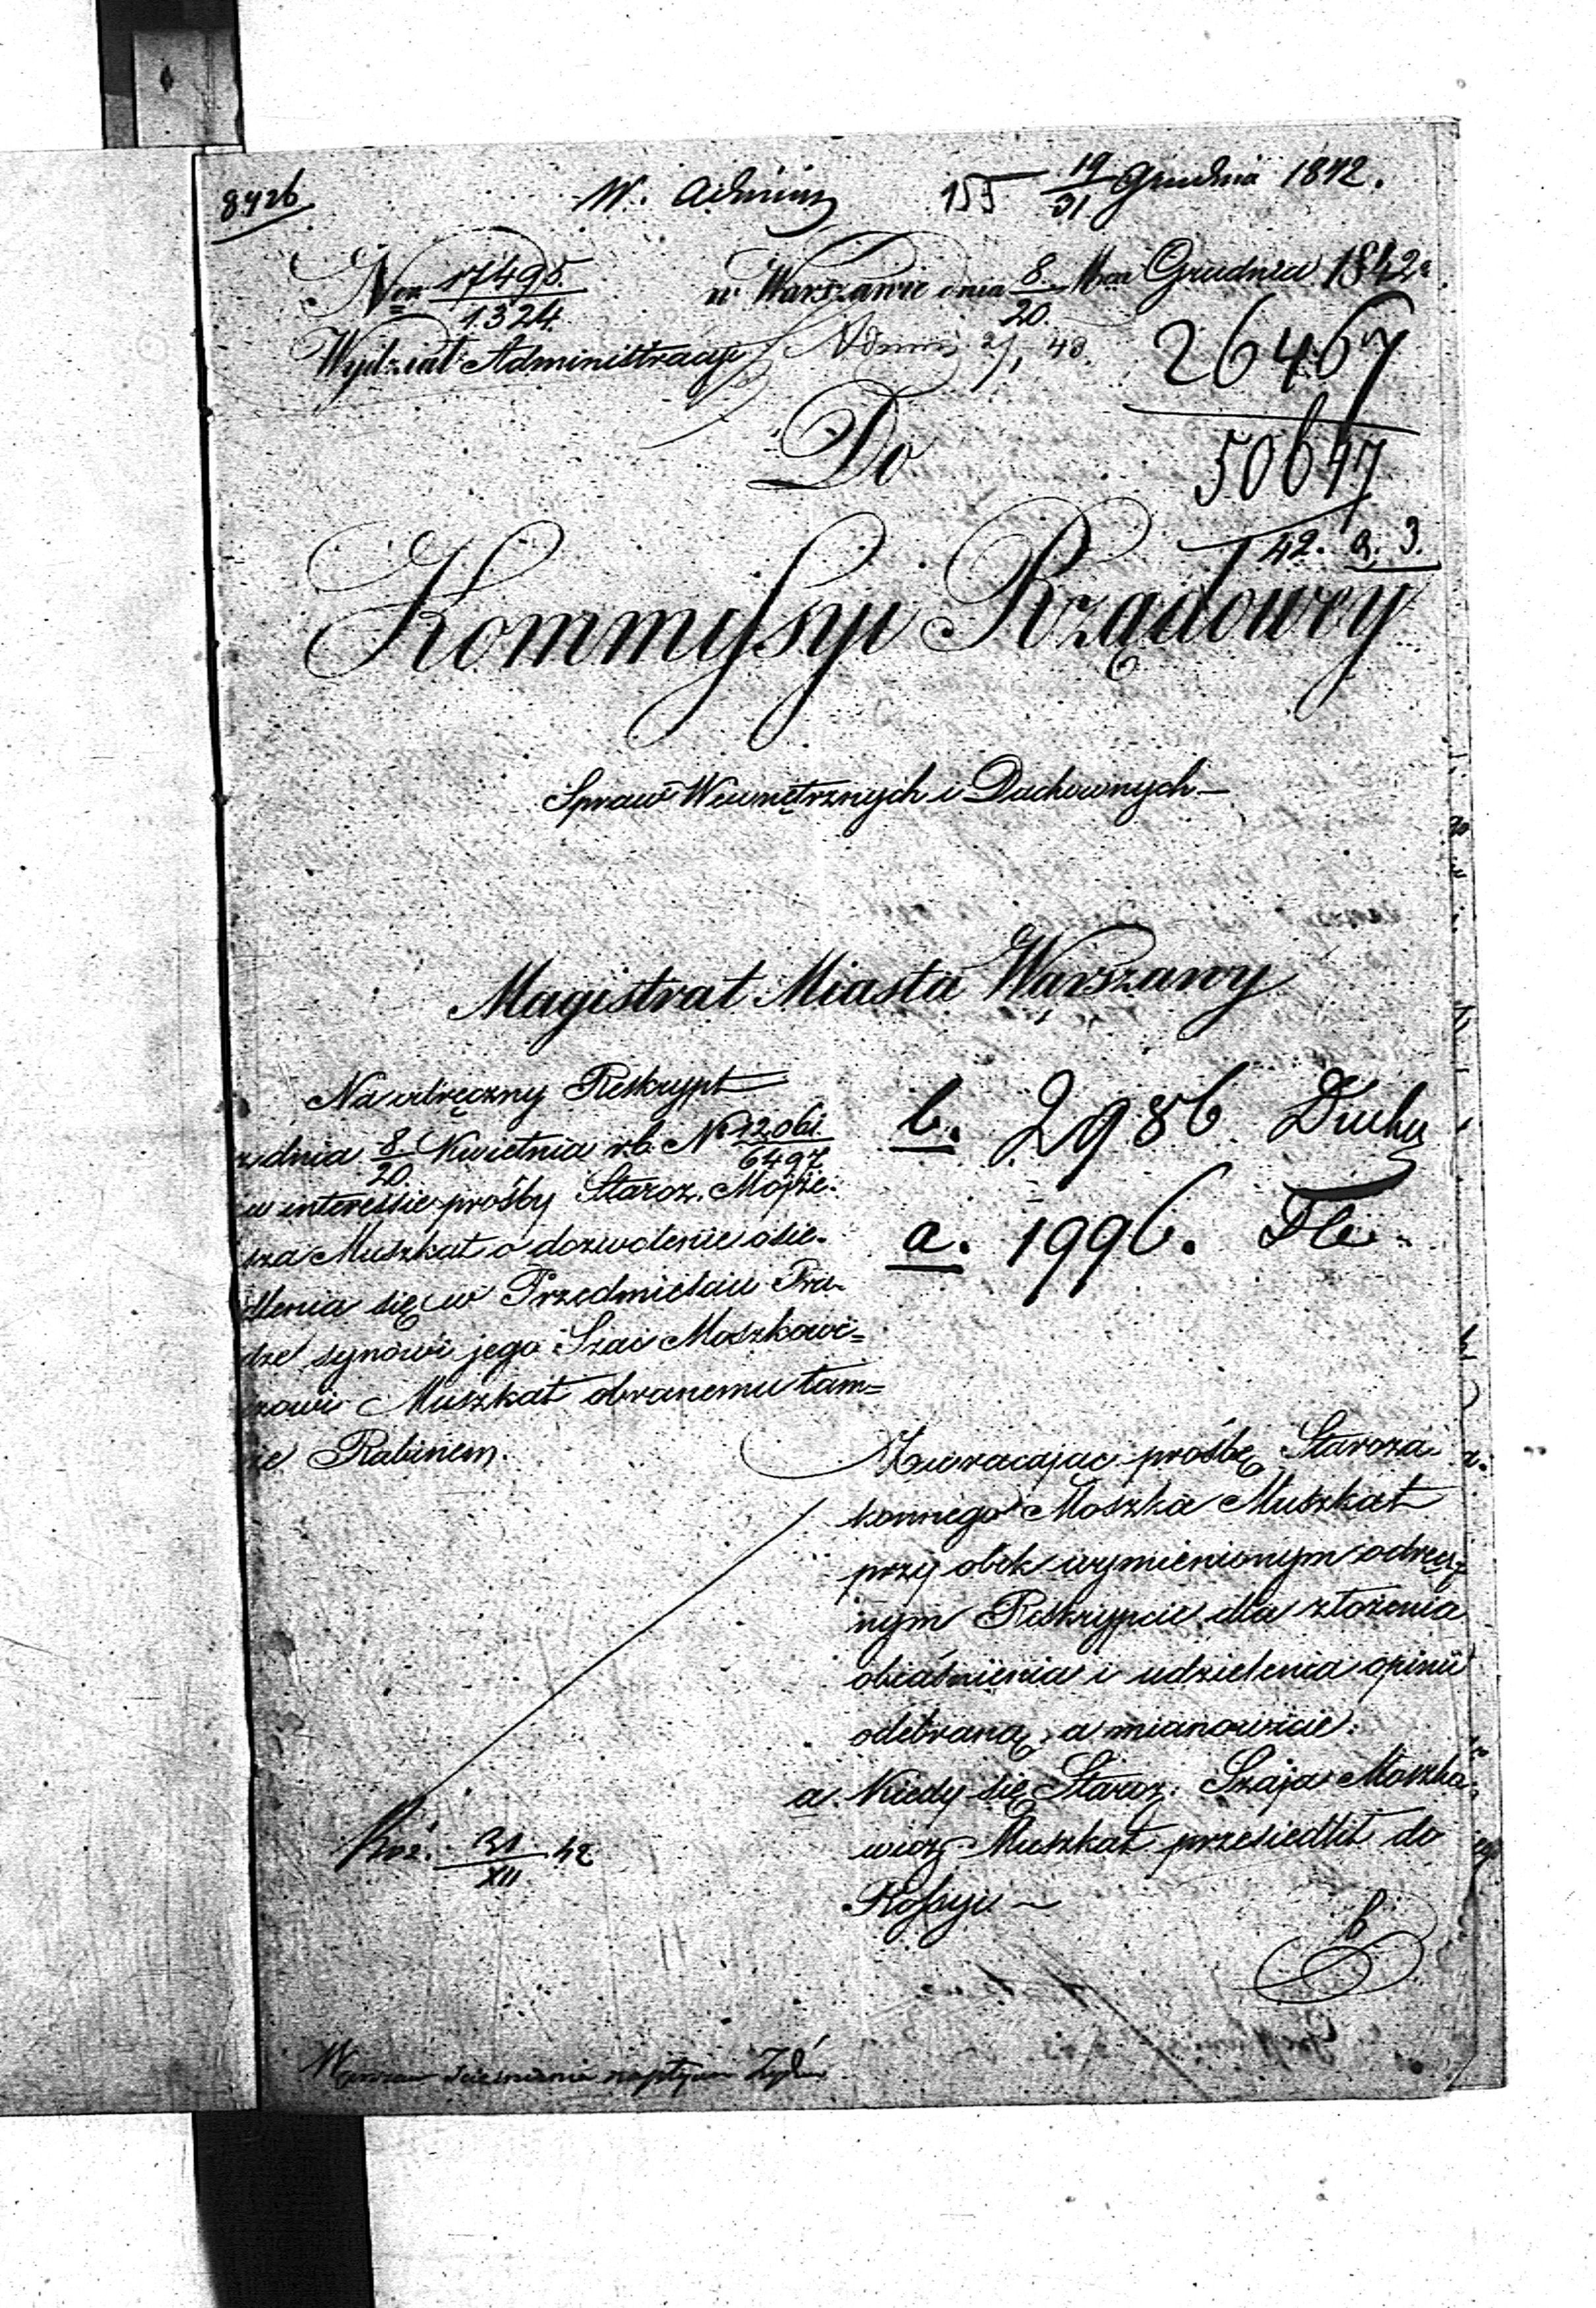 8926
W. Admin 155 19/31 Grudnia 1842.
Nro 17495/1324. w Warszawie dnia 8/20. Mca Grudnia 1842 r.
Wydział Administracyi
26467
Do
50647
42. a. 3.
Kommyssyi Rządowey
Spraw Wewnętrznych i Duchownych
Magistrat Miasta Warszawy
Na odręczny Reskrypt
z dnia 8/20. Kwietnia r.b. No 12061/6497
w interessie prośby Staroz. Mojże-
sza Muszkat o dozwolenie osie-
dlenia się w Przedmieściu Pra-
dze synowi jego Szai Moszkowi=
czowi Muszkat obranemu tam=
że Rabinem.
b. 2986 Duchy
a. 1996.
Zwracając prośbę Staroza-
konnego Moszka Muszkat
przy obok wymienionym odręcz-
nym Reskrypcie dla złożenia
obiaśnienia i udzielenia opinii
odebraną, a mianowicie:
a. Kiedy się Staroz. Szaja Moszko-
wicz Muszkat przesiedlił do
Rossyi
31/XII 42